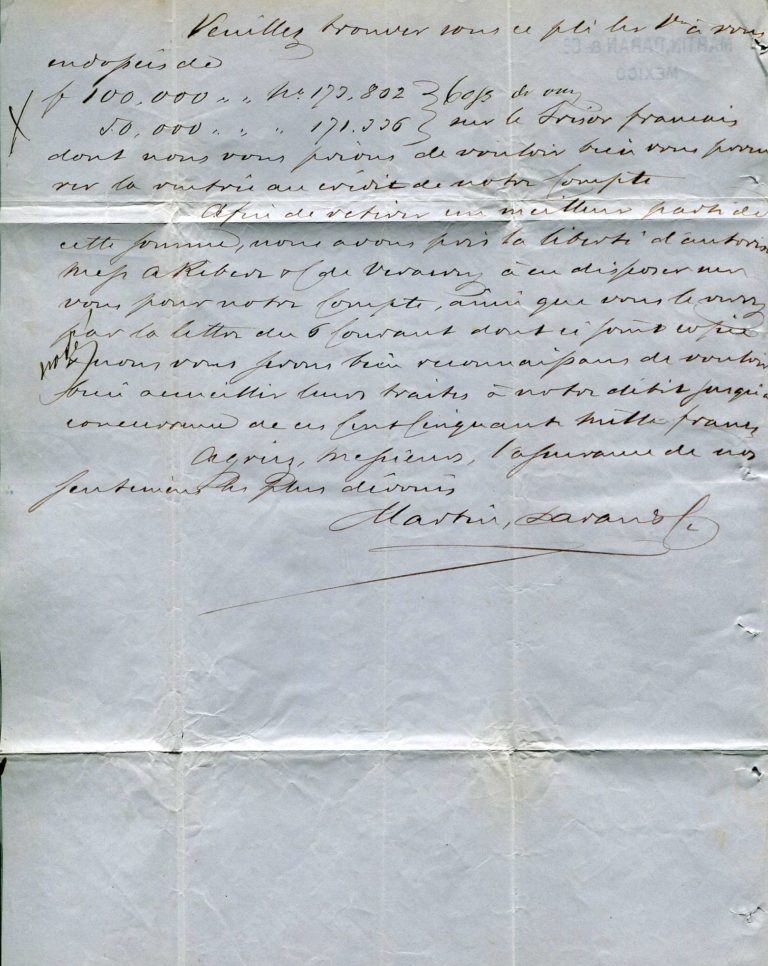 Veuillez trouver sous ce pli les à vous
endossés de
f 100,000 " " No 172.802 } 60 j/s de vue
X 50,000 " " " 171.336 } sur le Trésor français
dont nous vous prions de vouloir bien vous procu
rer la rentrée au crédit de notre Compte
Afin de retirer un meilleur parti de
cette somme, nous avons pris la liberté d'autoris
Mess A Ribert & C de Veracruz à en disposer sur
vous pour notre Compte, ainsi que vous le verrez
par la lettre du 6 Courant dont ci joint copie
noté & nous vous serons bien reconnaissans de vouloir
bien accueillir leurs traites à notre débit jusqu'à
concurrence de ces Cent Cinquante Mille francs
Agréez, Messieurs, l'assurance de nos
sentimens les Plus dévoués
Martin, Daran & C
MARTIN, DARAN & Co
MEXICO